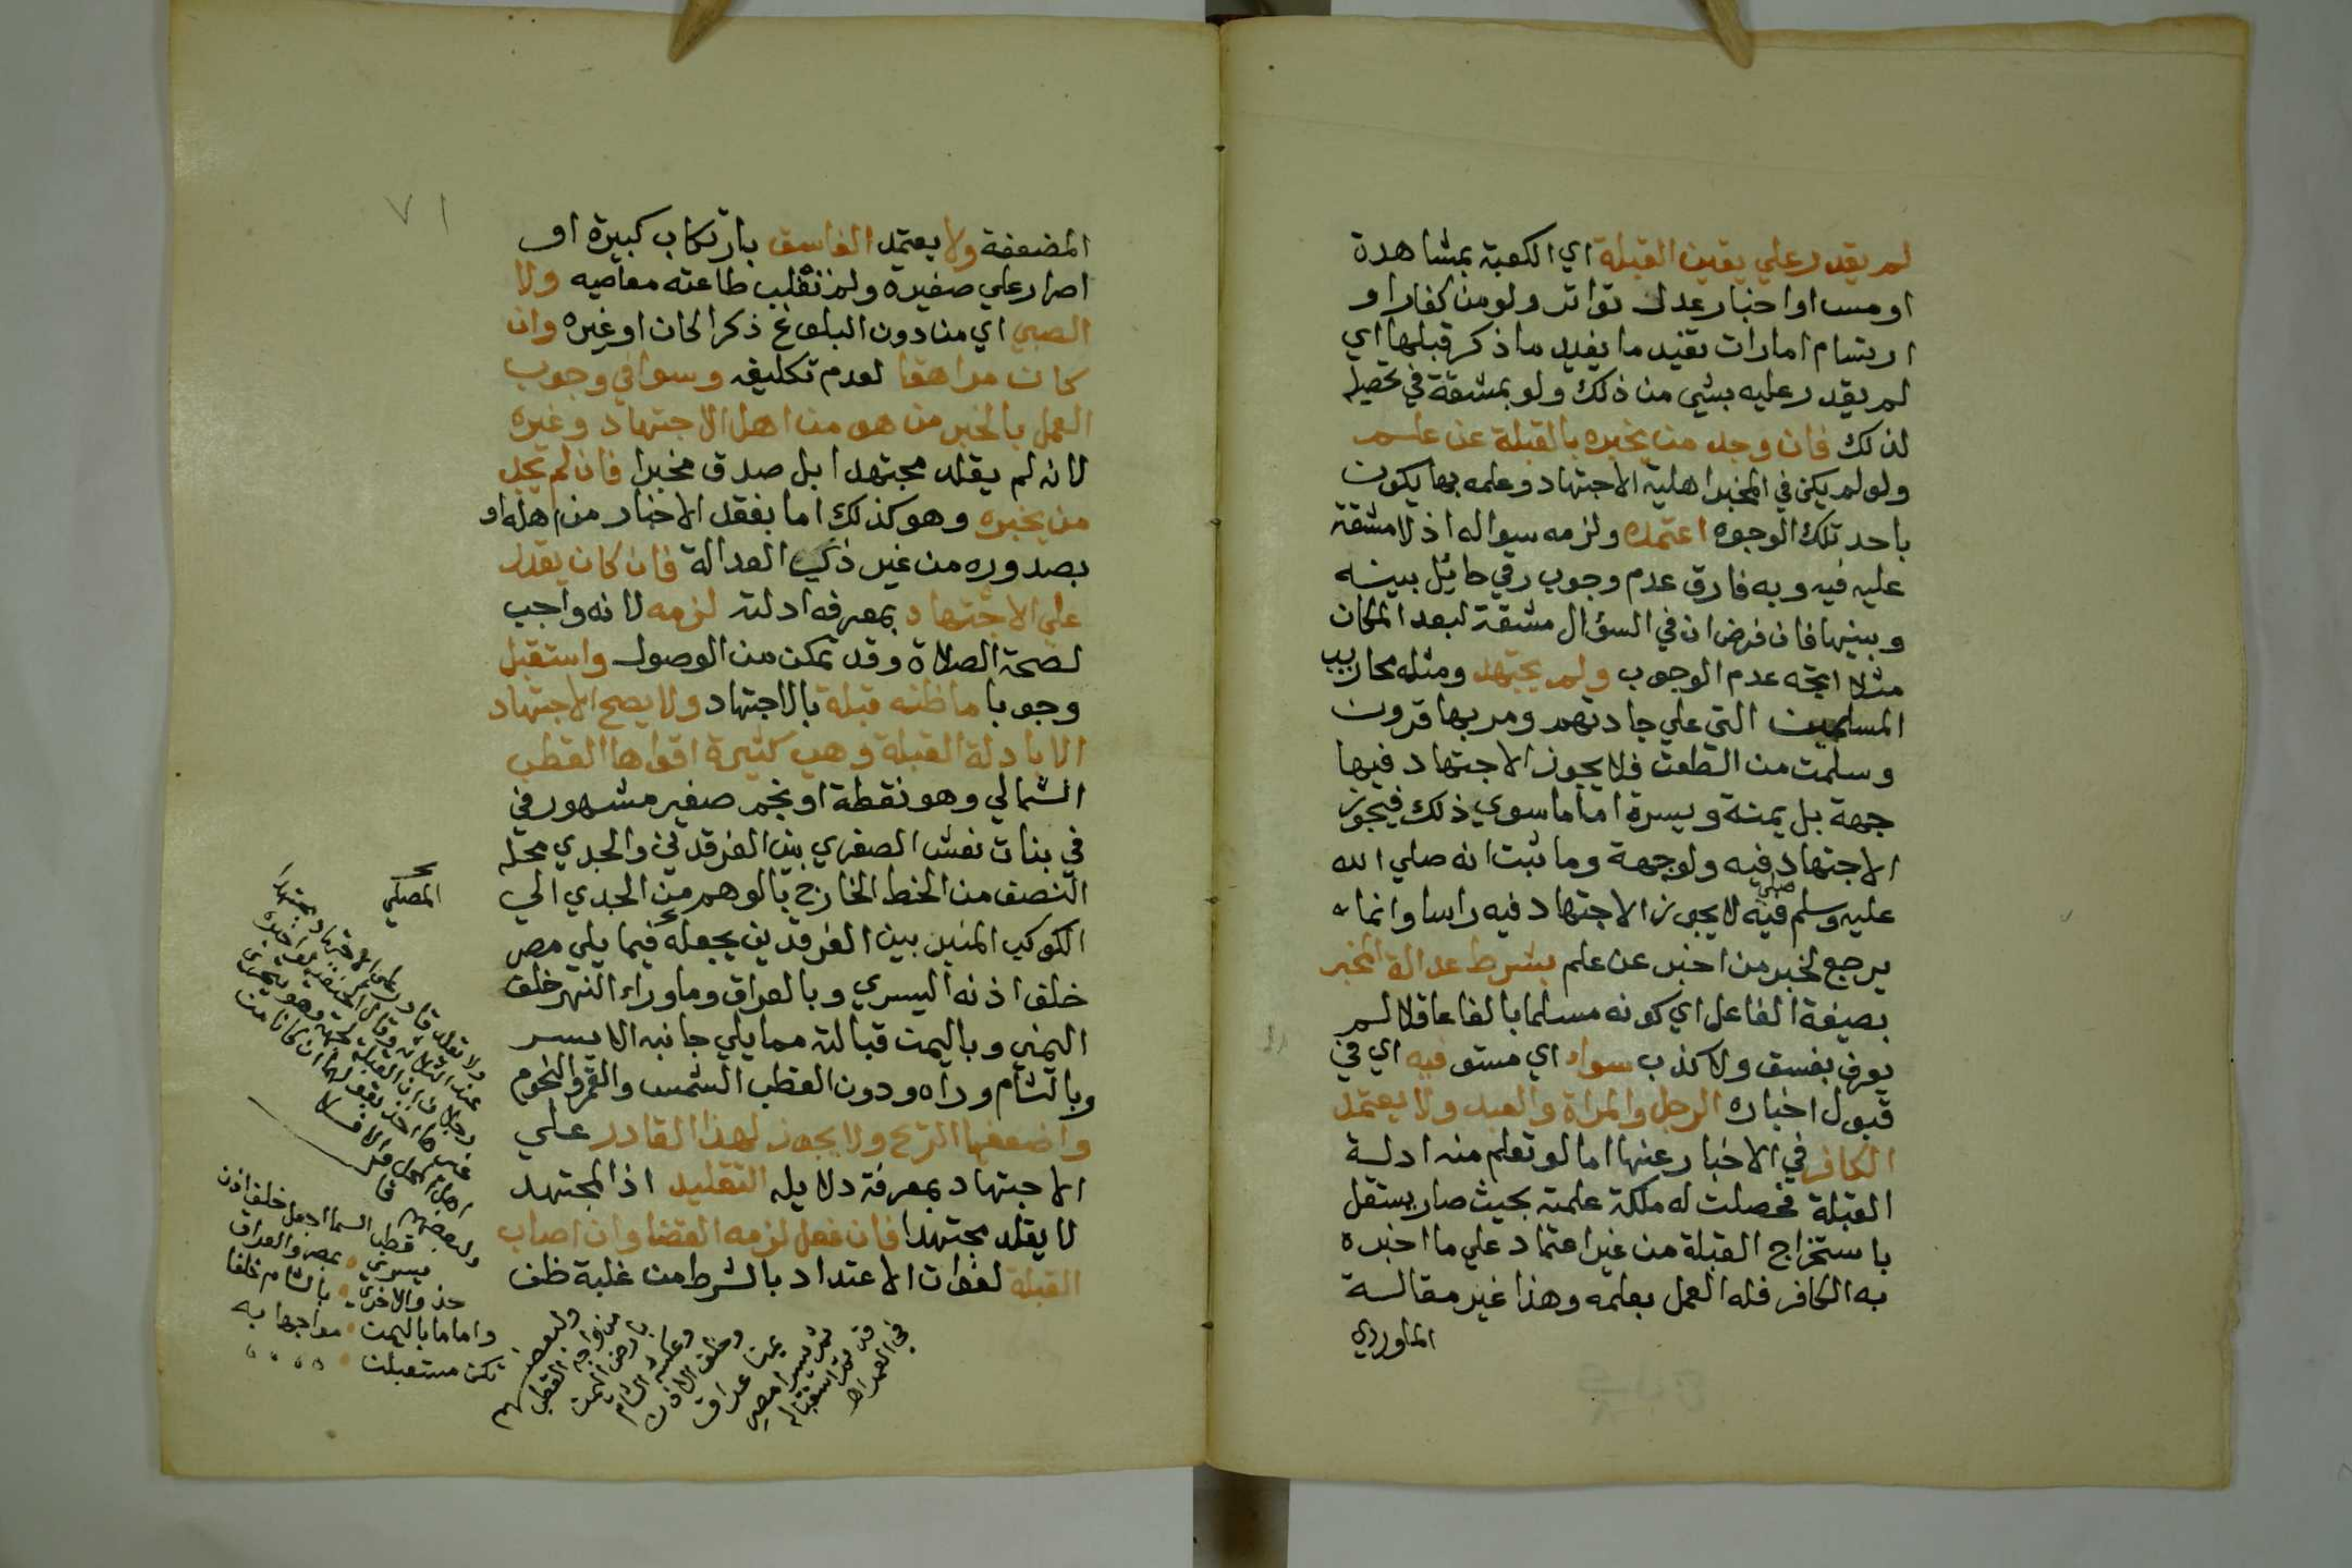 لم يقدر علي يقين القبلة اي الكعبة بمشاهدة
او مس او اخبار عدد تواتر ولو من كفار او
ارتسام امارات تفيد ما يفيد ما ذكر قبلها اي
لم يقدر عليه بشي من ذلك ولو بمشقة في تحصيله
لذلك فان وجد من يخبره بالقبلة عن علم
ولو لم يكن في المخبر اهلية الاجتهاد وعلمه بها يكون
باحد تلك الوجوه اعتمده ولزمه سواله اذ لا مشقة
عليه فيه وبه فارق عدم وجوب رقي حائل بينه
وبينها فان فرض ان في السؤال مشقة لبعد المكان
مثلا اتجه عدم الوجوب ولم يجتهد ومثله محاريب
المسلمين التي علي جادتهم ومر بها قرون
وسلمت من الطعن فلا يجوز الاجتهاد فيها
جهة بل يمنة ويسرة اما ما سوي ذلك فيجوز
الاجتهاد فيه ولو جهة وما ثبت انه صلي الله
عليه وسلم صلي فيه لا يجوز الاجتهاد فيه راسا وانما
يرجع لخبر من اخبر عن علم بشرط عدالة المخبر
بصيغة الفاعل اي كونه مسلما بالغا عاقلا لم
يعرف بفسق ولا كذب سواء اي مستو فيه اي في
قبول اخباره الرجل والمراة والعبد ولا يعتمد
الكافر في الاخبار عنها اما لو تعلم منه ادلة
القبلة فحصلت له ملكة علمية بحيث صار يستقل
باستخراج القبلة من غير اعتماد علي ما اخبره
به الكافر فله العمل بعلمه وهذا غير مقالة
الماوردي
٧١
المضعفة ولا يعتمد الفاسق بارتكاب كبيرة او
اصرار علي صغيره ولم تغلب طاعته معاصيه ولا
الصبي اي من دون البلوغ ذكرا كان او غيره وان
كان مراهقا لعدم تكليفه وسوا في وجوب
العمل بالخبر من هو من اهل الاجتهاد وغيره
لانه لم يقلد مجتهدا بل صدق مخبرا فان لم يجد
من يخبره وهو كذلك اما بفقد الاخبار من اهله او
بصدوره من غير ذي العدالة فان كان يقدر
علي الاجتهاد بمعرفة ادلته لزمه لانه واجب
لصحة الصلاة وقد تمكن من الوصول واستقبل
وجوبا ما ظنه قبلة بالاجتهاد ولا يصح الاجتهاد
الا بادلة القبلة وهي كثيرة اقواها القطب
الشمالي وهو نقطة او نجم صغير مشهور في
في بنات نعش الصغري بين الفرقدين والجدي محله
النصف من الخط الخارج بالوهم من الجدي الي
الكوكب المنير بين الفرقدين يجعله فيما يلي مصر
خلف اذنه اليسري وبالعراق وما وراء النهر خلف
اليمني وباليمن قبالته مما يلي جانبه الايسر
وبالشام وراه ودون القطب الشمس والقمر والنجوم
واضعفها الريح ولا يجوز لهذا القادر علي
الاجتهاد بمعرفة دلايله التقليد اذ المجتهد
لا يقلد مجتهدا فان فعل لزمه القضا وان اصاب
القبلة لفوات الاعتداد بالشرط من غلبة ظن
ولا يقلد قادر علي الاجتهاد مجتهدا
ولبعضهم
قطب السما اجعل خلف اذن
يسري بمصر والعراق
حذو الاخري بالشام خلفا
واماما باليمن مواجها به
تكن مستقبلن
ولبعضهم
من واجه القطب
بارض اليمن
وعكسه الشام
وخلف الاذن
يمنا عراق
ثم يسرا مصر